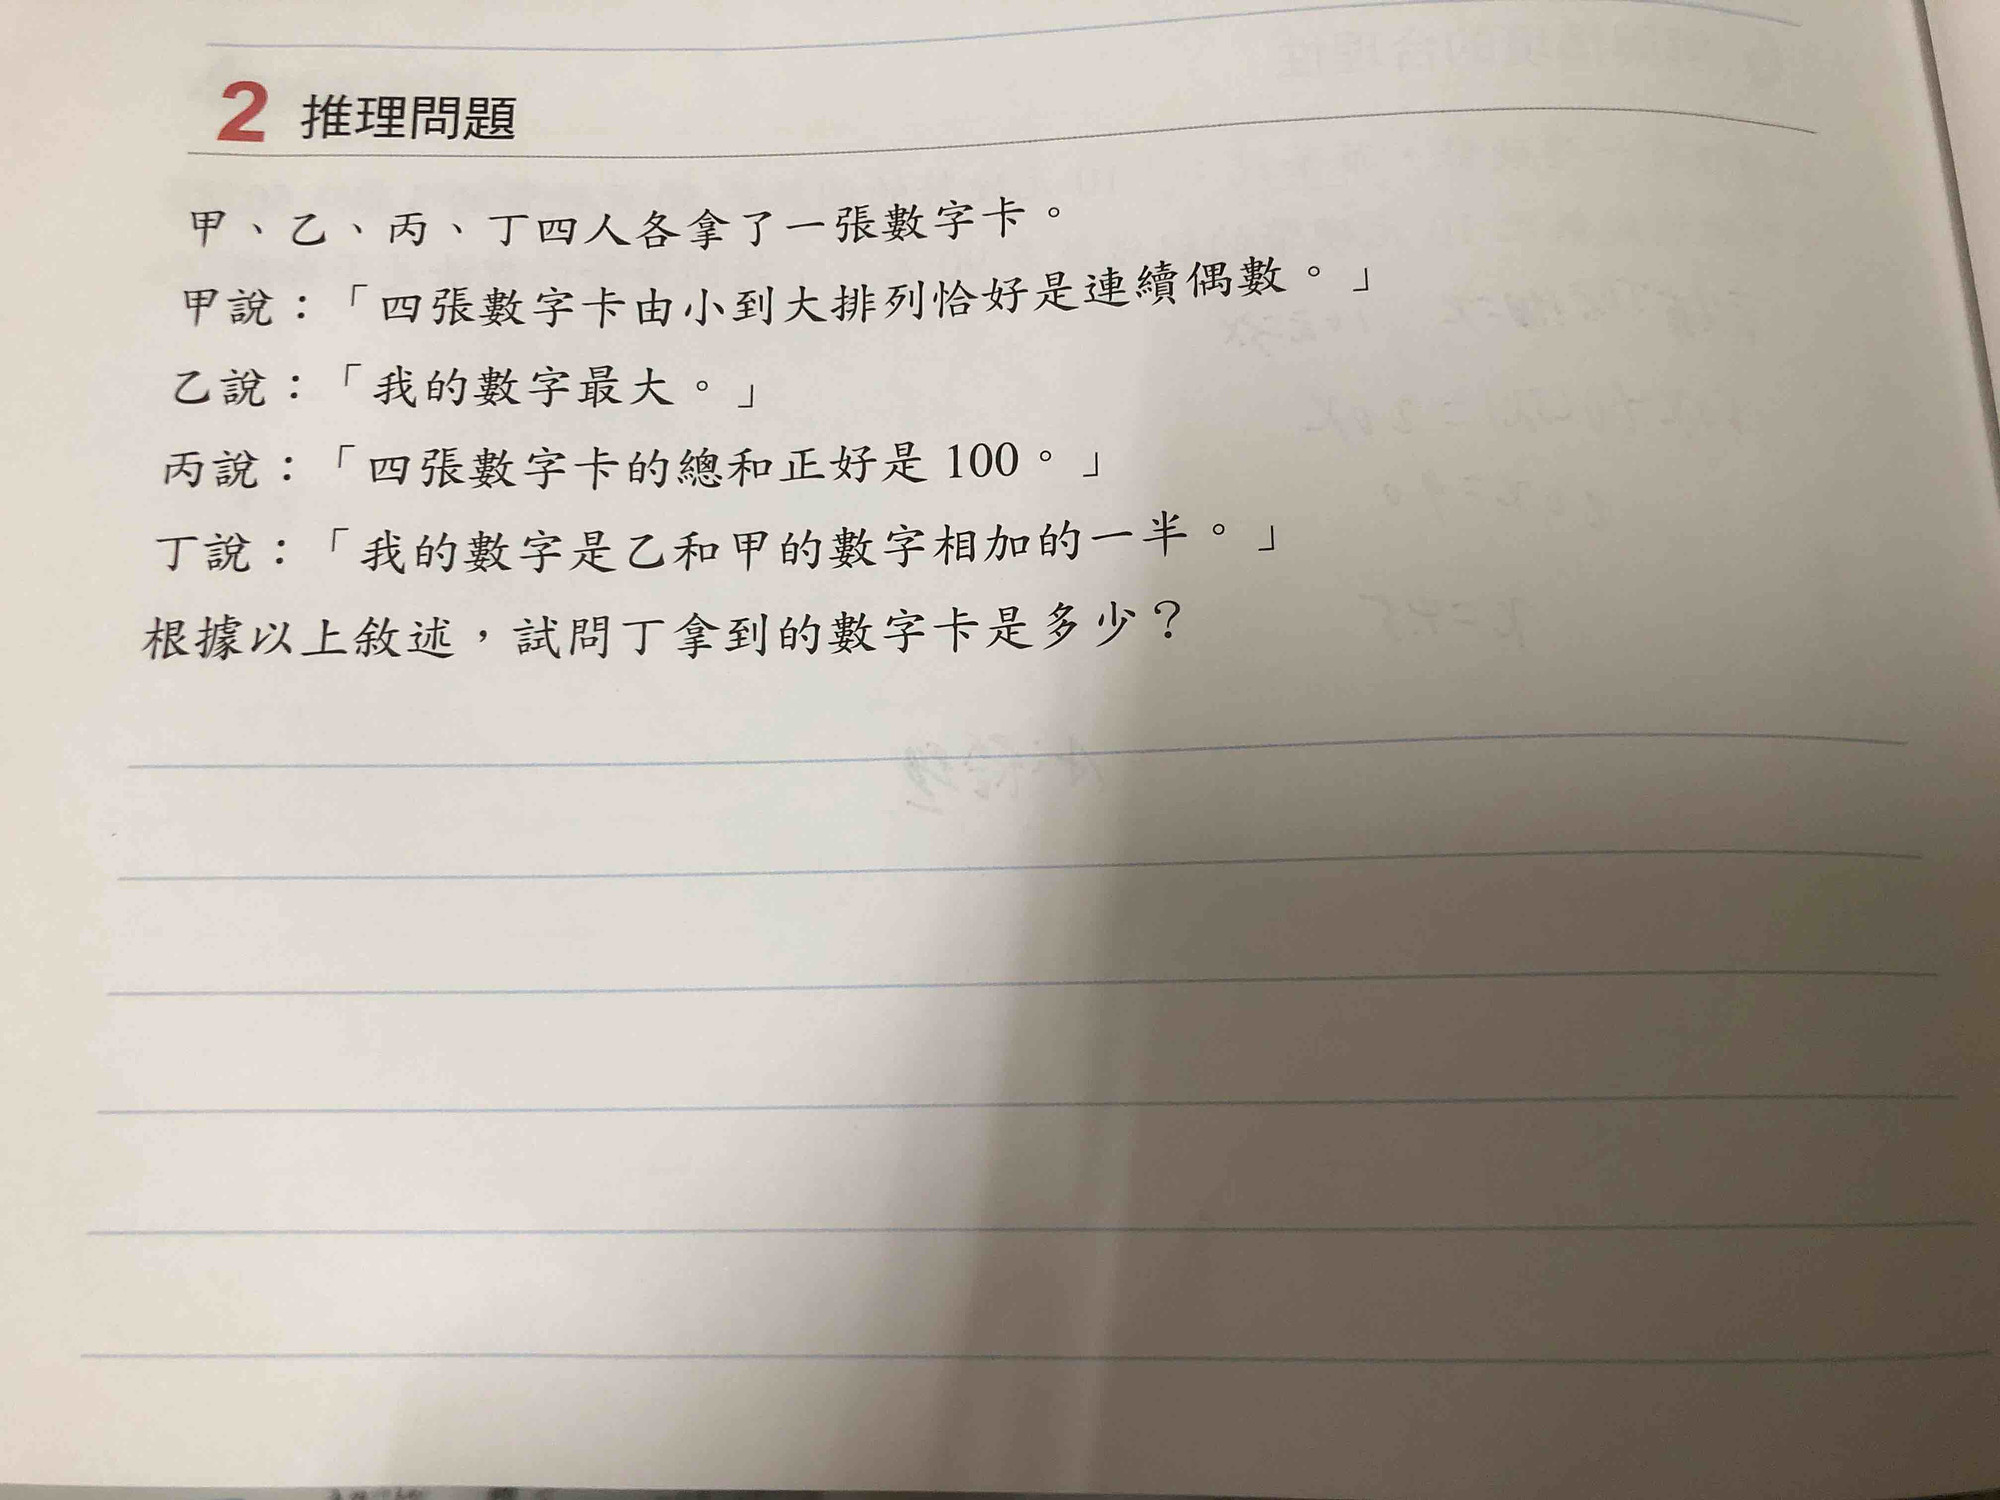 2 推理問題
甲、乙、丙、丁四人各拿了一張數字卡。
甲說：「四張數字卡由小到大排列恰好是連續偶數。」
乙說：「我的數字最大。」
丙說：「四張數字卡的總和正好是 100。」
丁說：「我的數字是乙和甲的數字相加的一半。」
根據以上敘述，試問丁拿到的數字卡是多少？